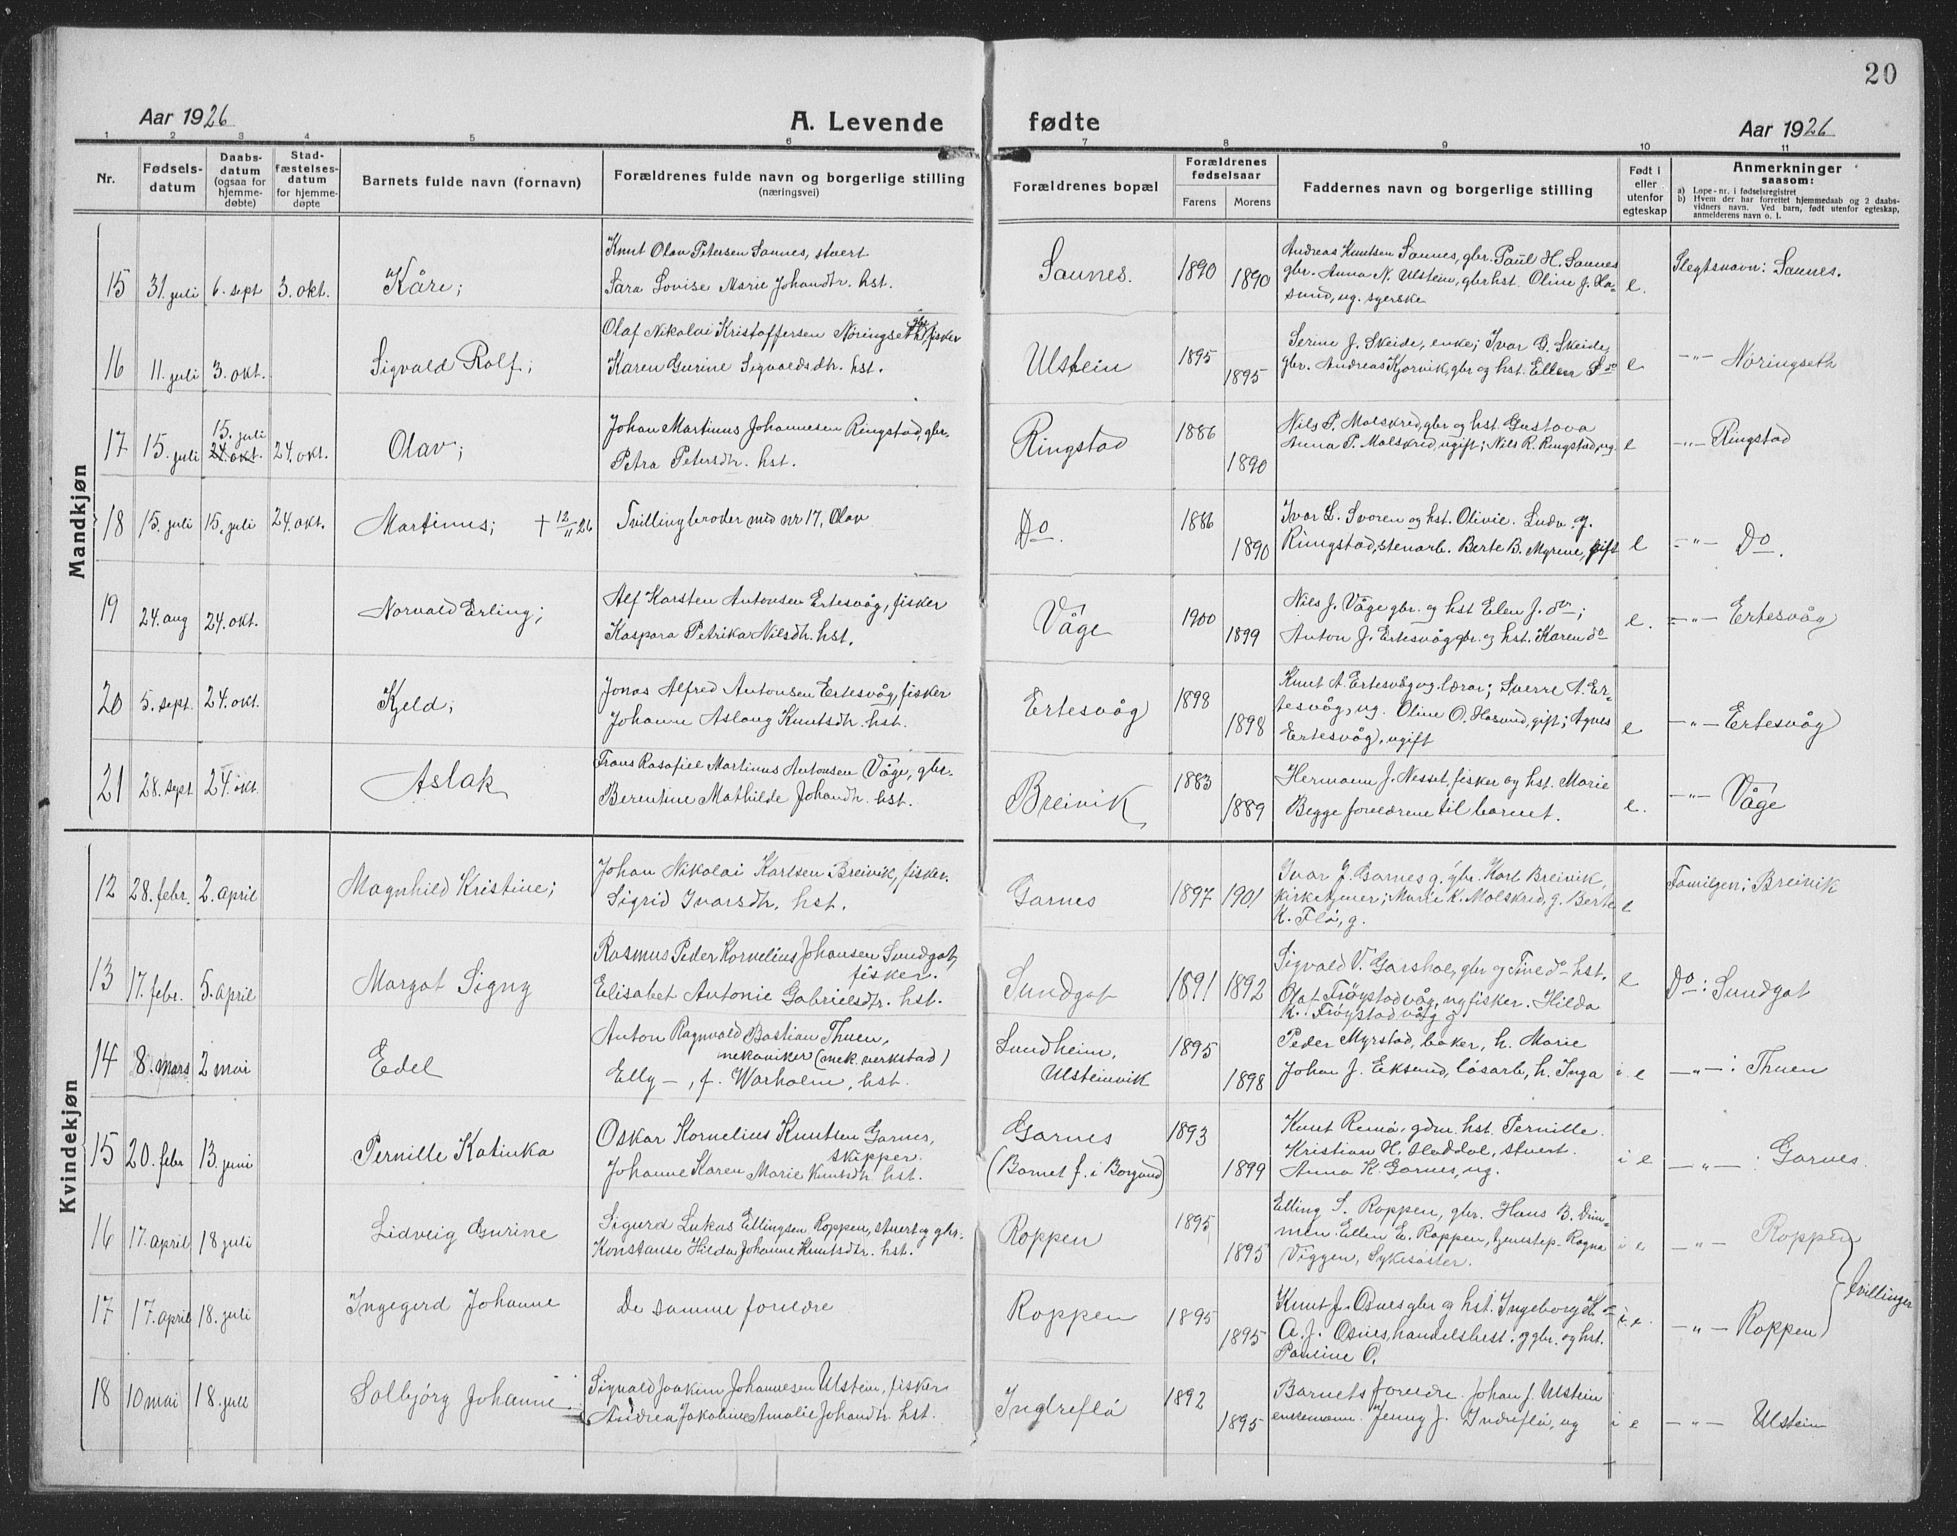 20
Aar 1926
A. Levende fødte
Aar 1926
1 2 3 4 5 6 7 8 9 10 11
Nr.
Fødsels-
datum
Daabs-
datum
(ogsaa for
hjemme-
døbte)
Stad-
fæstelses-
datum
for hjemme-
døpte
Barnets fulde navn (fornavn)
Forældrenes fulde navn og borgerlige stilling
(næringsvei)
Forældrenes bopæl
Forældrenes
fødselsaar
Farens Morens
Faddernes navn og borgerlige stilling
Født i
eller
utenfor
egteskap
Anmerkninger
saasom:
a) Løpe-nr. i fødselsregistret
b) Hvem der har forrettet hjemmedaab og 2 daabs-
vidners navn. Ved barn, født utenfor egteskap,
anmelderens navn o. l.
Mandkjøn
15 31. juli 6. sept 3. okt. Kåre;
Knut Olav Petersen Saunes, stuert
Sara Lovise Marie Johandtr. hst.
Saunes. 1890 1890
Andreas Knutsen Saunes, gbr. Paul H. Saunes
gbr. Anna N. Ulstein, gbr hst. Oline J. Ha-
sund, ug. syerske
e. Slegtsnavn: Saunes.
16 11. juli 3. okt. Sigvald Rolf;
Olaf Nikolai Kristoffersen Noringseth, fisker
Karen Gurine Sigvaldsdtr. hst.
Ulstein 1895 1895
Serine J. Skeide, enke; Ivar G. Skeide,
gbr. Andreas Kjørvik, gbr og hst. Ellen S do
e -"- Noringseth
17 15. juli 15. juli 24. okt. 24. okt. Olav;
Johan Martinus Johannesen Ringstad, gbr.
Petra Petersdtr. hst.
Ringstad 1886 1890
Nils P. Molskred, gbr og hst. Gustava
Anna P. Molskred, ugift; Nils R. Ringstad, ug.
e -"- Ringstad
18 15. juli 15. juli 24. okt. Martinus; + 12/11 26
Tvillingbroder med nr 17, Olav
Do. 1886 1890
Ivar L. Svoren og hst. Olivie. Ludv. J.
Ringstad, stenarb. Berte B. Myrene, gift
e -"- Do.
19 24. aug 24. okt. Norvald Erling;
Alf Karsten Antonsen Ertesvåg, fisker
Kaspara Petrika Nilsdtr. hst.
Våge 1900 1899
Nils J. Våge gbr. og hst Elen J. do;
Anton J. Ertesvåg gbr. og hst. Karen do
e. -"- Ertesvåg
20 5. sept. 24. okt. Kjeld;
Jonas Alfred Antonsen Ertesvåg, fisker
Johanne Aslaug Knutsdtr. hst.
Ertesvåg 1898 1898
Knut A. Ertesvåg ug. lærar; Sverre A. Er-
tesvåg, ug. Oline O. Hasund, gift; Agnes
Ertesvåg, ugift
e -"- Ertesvåg
21 28. sept 24. okt. Aslak
Frans Rasafiel Martinus Antonsen Våge, gbr.
Berentine Mathilde Johandtr. hst.
Breivik 1883 1889
Hermann J. Nesset, fisker og hst. Marie
Begge foreldrene til barnet.
e. -"- Våge
Kvindekjøn
12 28. febr. 2. april Magnhild Kristine;
Johan Nikolai Karlsen Breivik, fisker.
Sigrid Ivarsdtr. hst.
Garnes 1897 1901
Ivar J. Garnes g. gbr. Karl Breivik,
kirketjener; Marie K. Molskred, g. Berte
K. Flø, g.
e Familjen: Breivik
13 17. febr. 5. april Margot Signy
Rasmus Peder Kornelius Johansen Sundgot,
fisker.
Elisabet Antonie Gabrielsdtr. hst.
Sundgot 1891 1892
Sigvald V. Garshol, gbr og Tine do hst.
Olaf Frøystadvåg, ug fisker. Hilda
K. Frøystadvåg g
e Do: Sundgot
14 8. mars 2 mai Edel
Anton Ragnvald Bastian Thuen,
mekaniker (mek. verkstad)
Elly -, f. Warholm, hst.
Sundheim,
Ulsteinvik
1895 1898
Peder Myrstad, baker, h. Marie
Johan J. Eksund, løsarb, h. Inga
i e -"-: Thuen
15 20. febr 13. juni Pernille Katinka
Oskar Kornelius Knutsen Garnes,
skipper.
Johanne Karen Marie Knutsdtr. hst.
Garnes
(Barnet f. i Borgund)
1893 1899
Knut Remø, gdm. hst. Pernille.
Kristian H. Haddal, stuert.
Anna K. Garnes, ug.
i e -"-: Garnes.
16 17. april 18 juli Lidveig Gurine
Sigurd Lukas Ellingsen Roppen, stuert og gbr.
Konstanse Hilda Johanne Knutsdtr. hst.
Roppen 1895 1895
Elling S. Roppen, gbr. Hans B. Dim-
men Ellen E. Roppen, tjenstep. Ragna
Viggen, Sykesøster.
i e -"- Roppen
17 17. april 18. juli Ingegerd Johanne
De samme foreldre
Roppen 1895 1895
Knut J. Osnes gbr og hst. Ingeborg K. do
A. J. Osnes, handelsbest. og gbr. og hst.
Pauline O.
i e. -"- Roppen
tvillinger
18 10 mai 18. juli Solbjørg Johanne
Sigvald Joakim Johannesen Ulstein, fisker
Andrea Jakobine Amalie Johandtr. hst.
Indreflø 1892 1895
Barnets foreldre. Johan J. Ulstein
enkemann. Jenny J. Indreflø, ug
i e -"- Ulstein